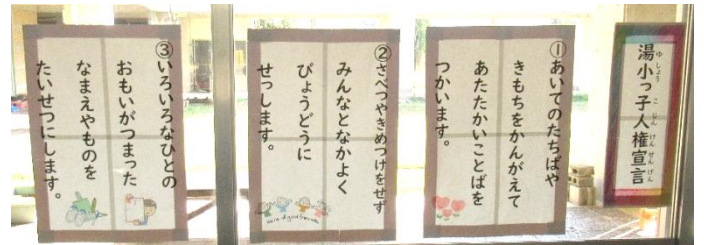 湯小っ子人権宣言
ゆしょう こ じんけんせんげん
①あいてのたちばや
きもちをかんがえて
あたたかいことばを
つかいます。
②さべつやきめつけをせず
みんなとなかよく
びょうどうに
せっします。
③いろいろなひとの
おもいがつまった
なまえやものを
たいせつにします。